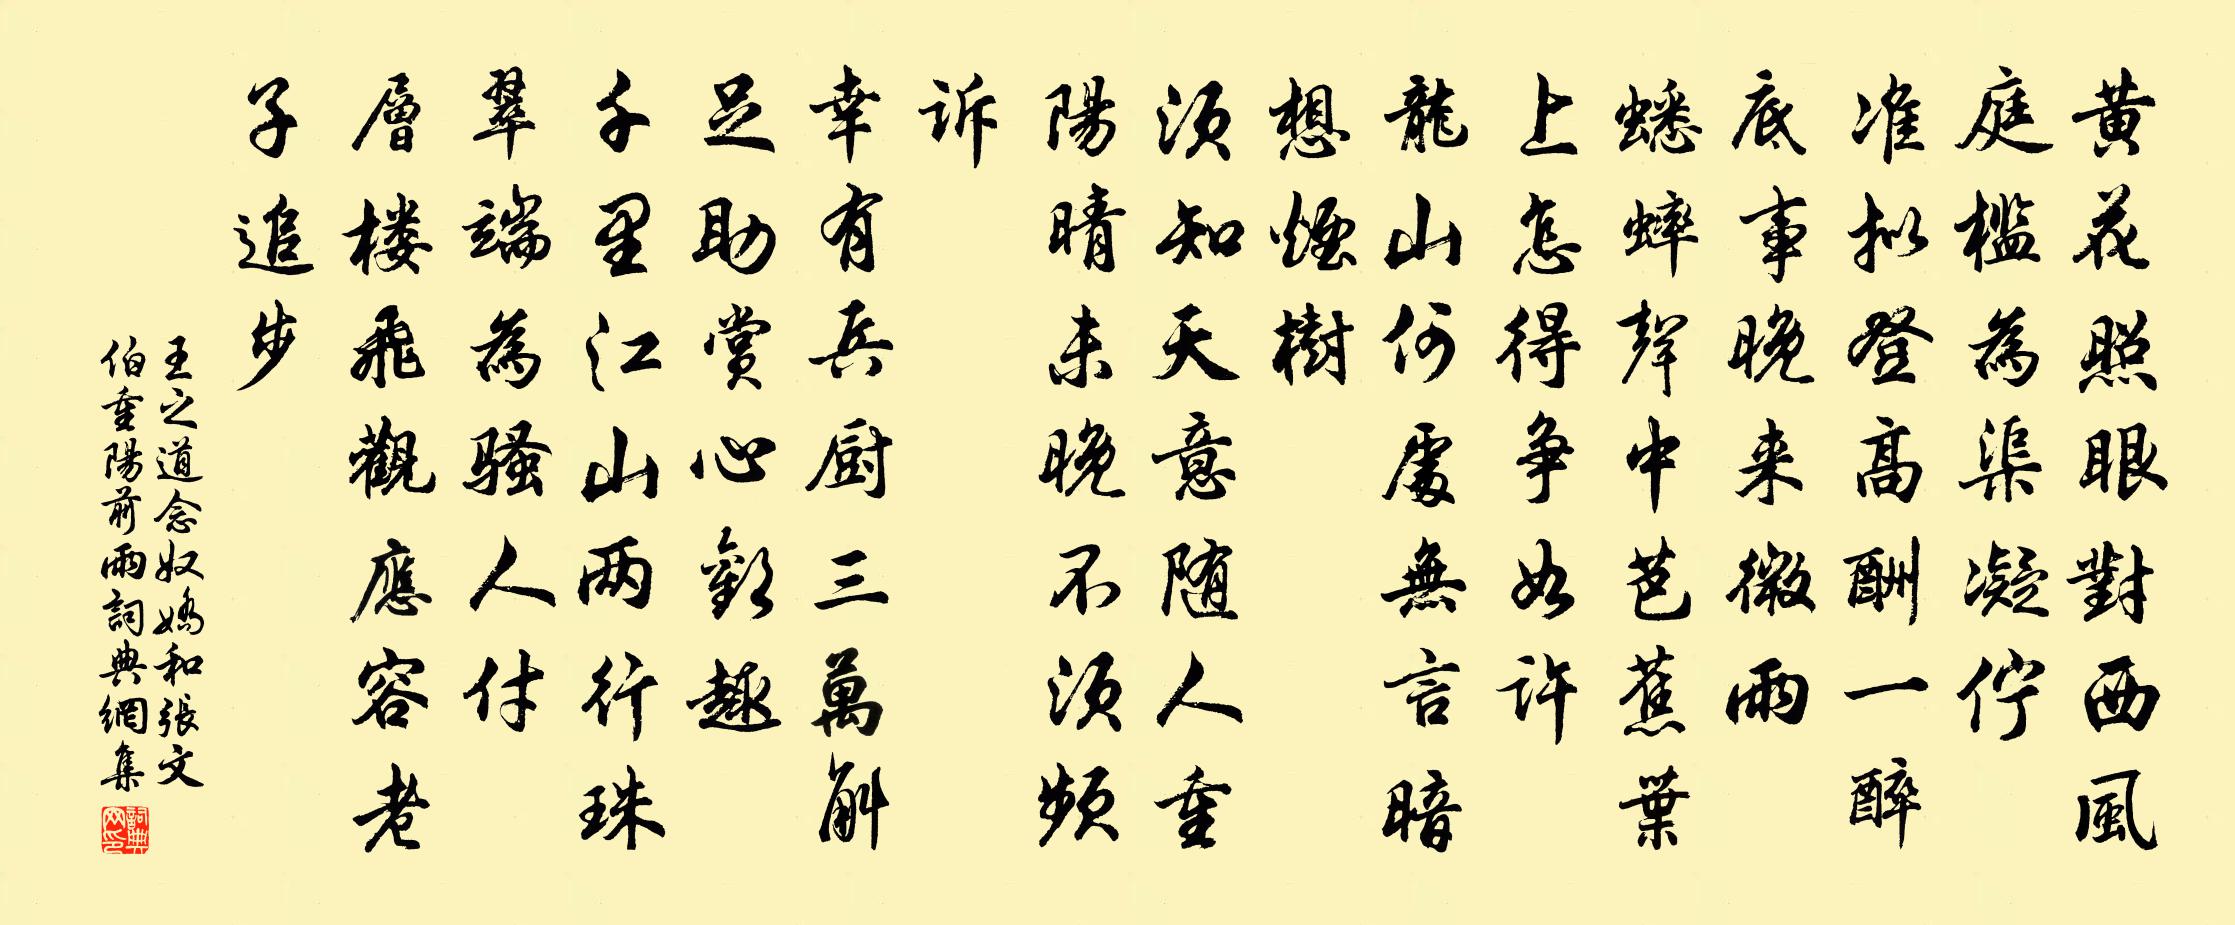 黄花照眼對西風
庭檻為渠凝佇
准拟登高酬一醉
底事晚来微雨
蟋蟀聲中芭蕉葉
上怎得爭如许
龍山何處無言暗
想煙樹
须知天意随人重
陽晴未晚不须频
诉
幸有兵厨三萬斛
足助賞心歡趣
千里江山两行珠
翠端為骚人付
層楼飛觀應容老
子追步
王之道念奴嬌和張文
伯重陽前雨詞典網集
詞典
网印